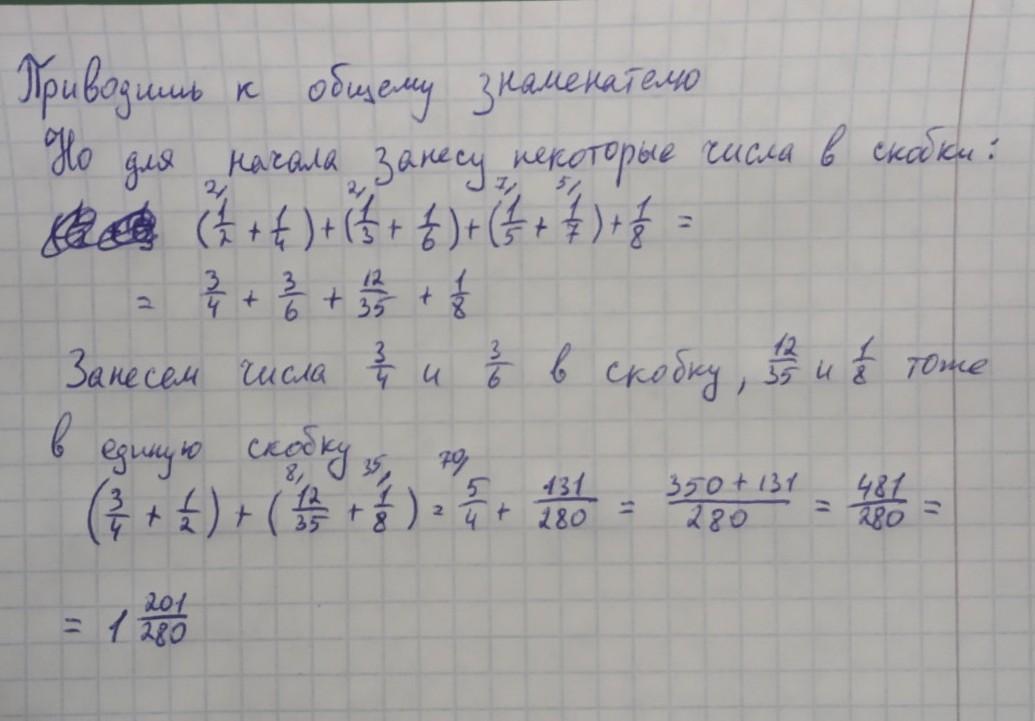 Приводишь к общему знаменателю
Но для начала занесу некоторые числа в скобки:
2, 2, 7, 5,
(1/2 + 1/4) + (1/3 + 1/6) + (1/5 + 1/7) + 1/8 =
= 3/4 + 3/6 + 12/35 + 1/8
Занесем числа 3/4 и 3/6 в скобку, 12/35 и 1/8 тоже
в единую скобку
8, 35, 70,
(3/4 + 1/2) + (12/35 + 1/8) = 5/4 + 131/280 = 350 + 131/280 = 481/280 =
= 1 201/280